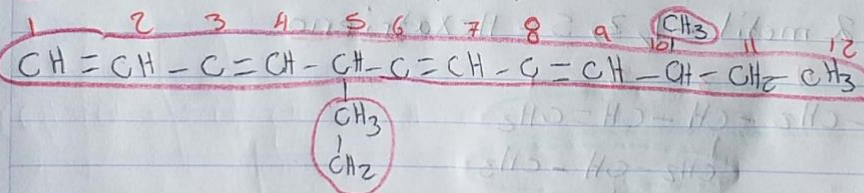 1 2 3 4 5 6 7 8 9 10 CH3 11 12
CH = CH - C = CH - CH - C = CH - C = CH - CH - CH2 - CH3
CH3
CH2